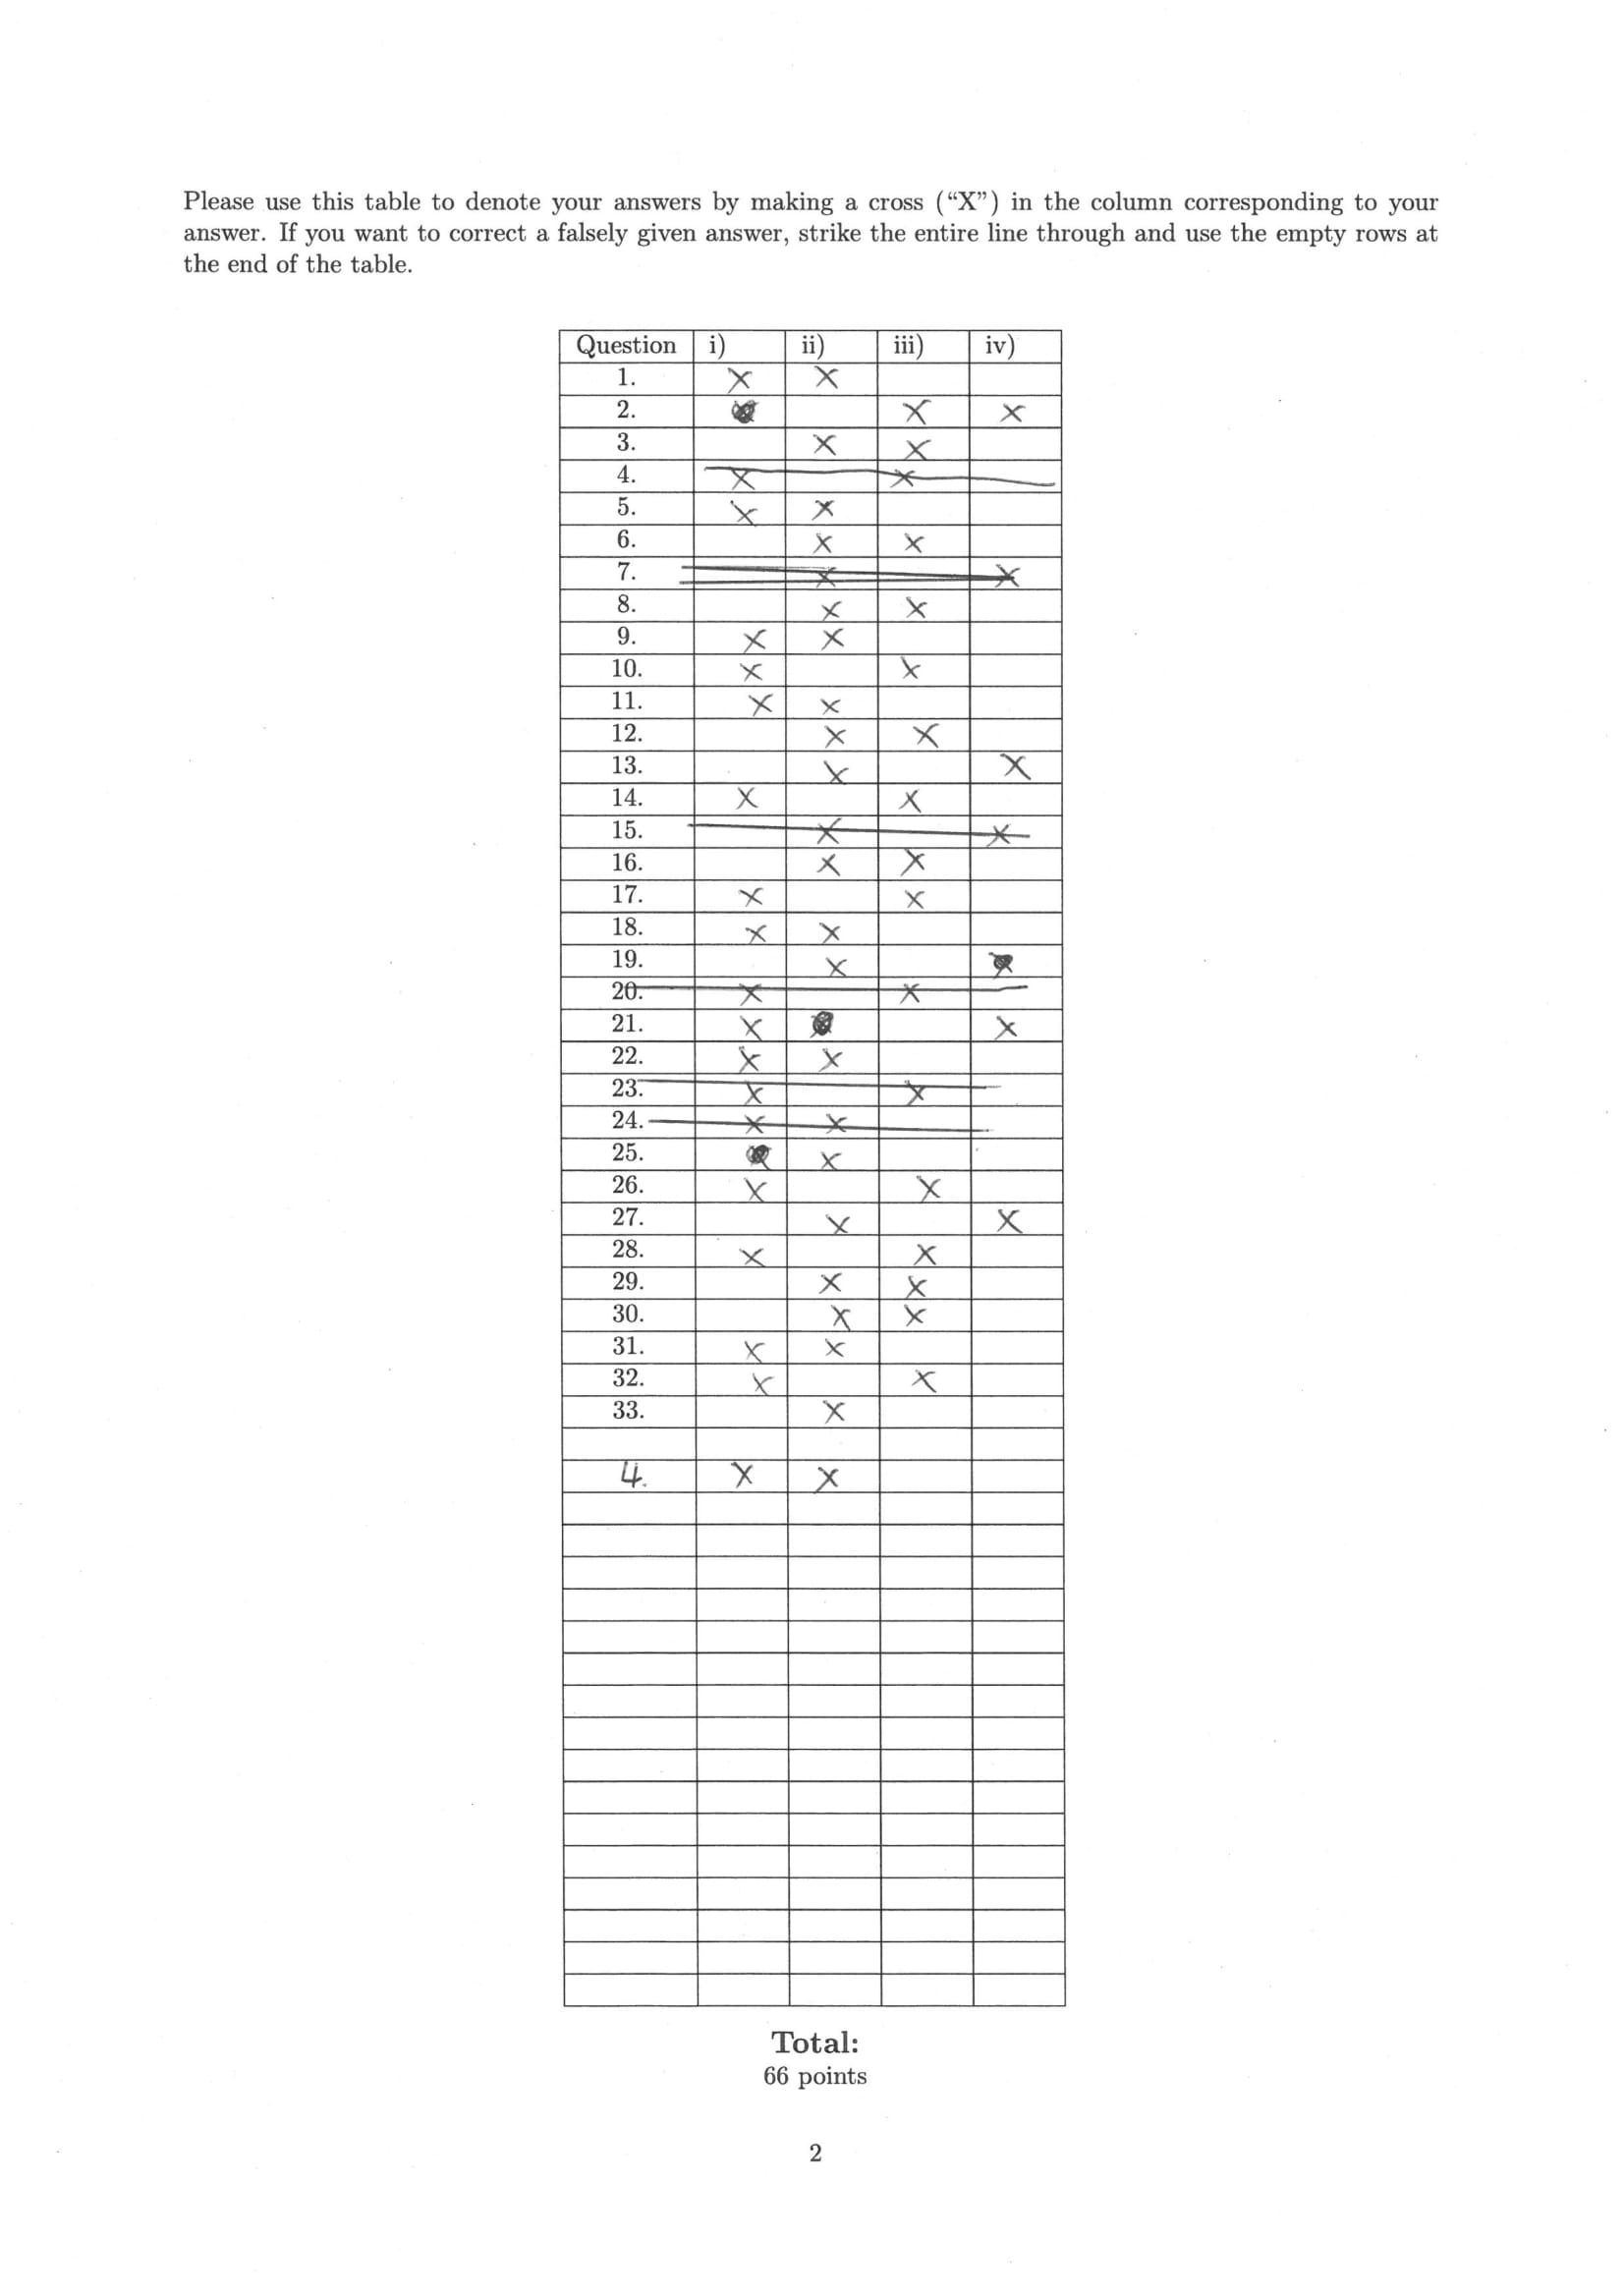 Please use this table to denote your answers by making a cross (“X”) in the column corresponding to your
answer. If you want to correct a falsely given answer, strike the entire line through and use the empty rows at
the end of the table.
Question i) ii) iii) iv)
1. X X
2. X X
3. X X
4. X X
5. X X
6. X X
7. X X
8. X X
9. X X
10. X X
11. X X
12. X X
13. X X
14. X X
15. X X
16. X X
17. X X
18. X X
19. X
20. X X
21. X X
22. X X
23. X X
24. X X
25. X
26. X X
27. X X
28. X X
29. X X
30. X X
31. X X
32. X X
33. X
4. X X
Total:
66 points
2